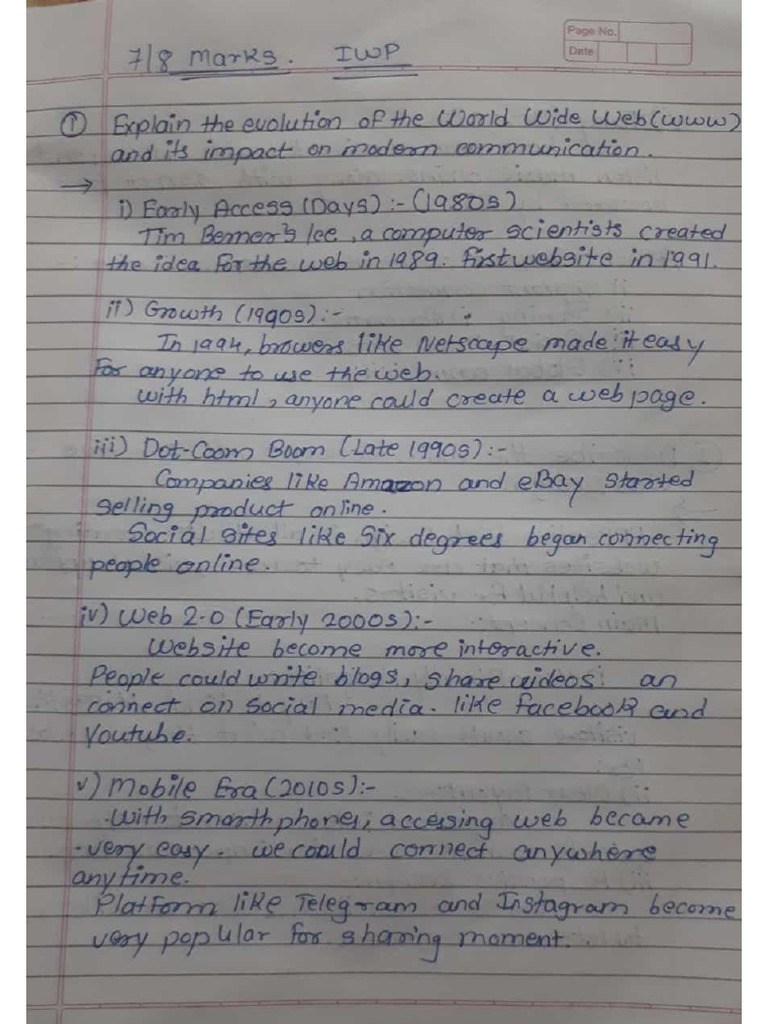 Page No.
Date
7/8 Marks. IWP
① Explain the evolution of the World Wide Web (WWW)
and its impact on modern communication.
→
i) Early Access (Days) :- (1980s)
Tim Berner's lee, a computer scientists created
the idea for the web in 1989. first website in 1991.
ii) Growth (1990s) :-
In 1994, browers like Netscape made it easy
for anyone to use the web.
with html, anyone could create a web page.
iii) Dot-Coom Boom (Late 1990s) :-
Companies like Amazon and eBay started
selling product online.
Social sites like Six degrees began connecting
people online.
iv) Web 2.0 (Early 2000s) :-
Website become more interactive.
People could write blogs, share videos an
connect on social media. like facebook and
Youtube.
v) Mobile Era (2010s) :-
with smarth phones, accessing web became
very easy. we could connect anywhere
anytime.
Platform like Telegram and Instagram become
very popular for sharing moment.